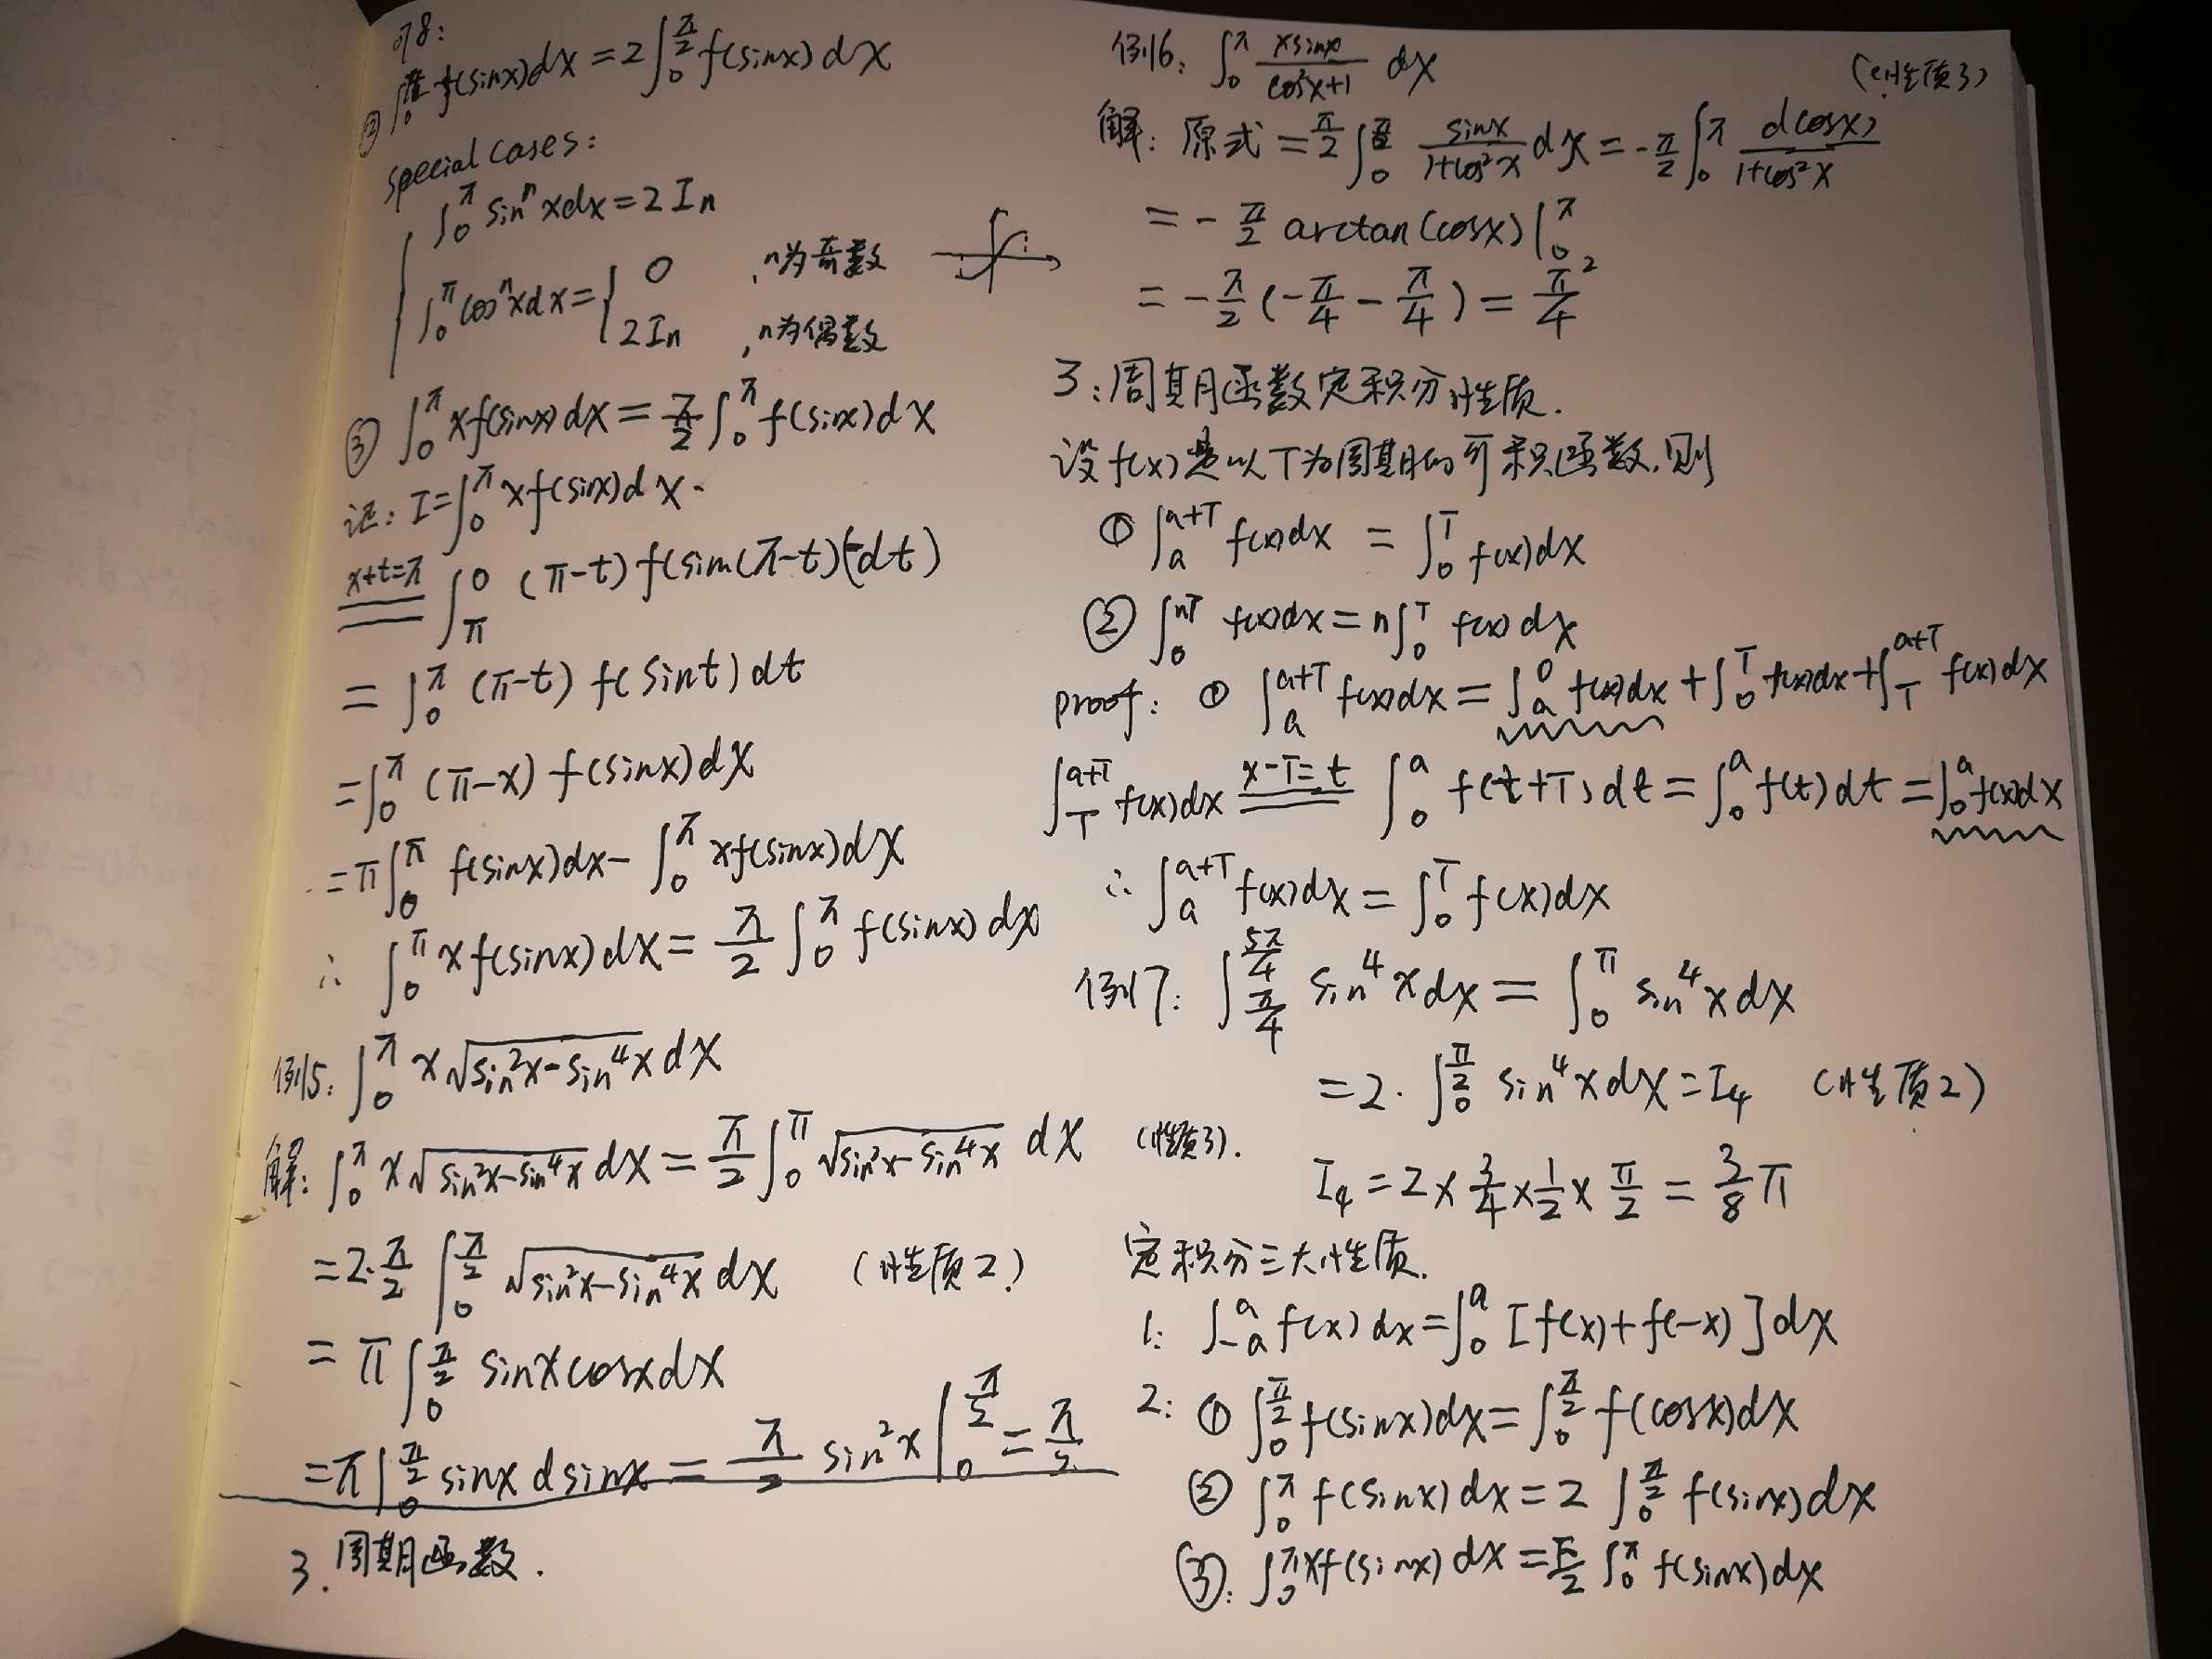 98:
② ∫₀^π f(sinx)dx = 2∫₀^{π/2} f(sinx)dx
special cases:
∫₀^π sinⁿxdx = 2Iₙ
∫₀^π cosⁿxdx = { 0 , n为奇数
2Iₙ , n为偶数
③ ∫₀^π xf(sinx)dx = π/2 ∫₀^π f(sinx)dx
记: I = ∫₀^π xf(sinx)dx.
x+t=π ∫_π^0 (π-t) f(sin(π-t))(-dt)
= ∫₀^π (π-t) f(sint)dt
= ∫₀^π (π-x) f(sinx)dx
= π∫₀^π f(sinx)dx - ∫₀^π xf(sinx)dx
∴ ∫₀^π xf(sinx)dx = π/2 ∫₀^π f(sinx)dx
例5: ∫₀^π x√(sin²x-sin⁴x) dx
解: ∫₀^π x√(sin²x-sin⁴x) dx = π/2 ∫₀^π √(sin²x-sin⁴x) dx (性质3).
= 2·π/2 ∫₀^{π/2} √(sin²x-sin⁴x) dx (性质2)
= π∫₀^{π/2} sinxcosxdx
= π∫₀^{π/2} sinx dsinx = π/2 sin²x |₀^{π/2} = π/2
3. 周期函数.
例6: ∫₀^π xsinx/(cos²x+1) dx
(性质3)
解: 原式 = π/2 ∫₀^π sinx/(1+cos²x) dx = -π/2 ∫₀^π d(cosx)/(1+cos²x)
= -π/2 arctan(cosx)|₀^π
= -π/2 (-π/4 - π/4) = π²/4
3: 周期函数定积分性质.
设f(x)是以T为周期的可积函数,则
① ∫_a^{a+T} f(x)dx = ∫₀^T f(x)dx
② ∫₀^{nT} f(x)dx = n∫₀^T f(x)dx
proof: ① ∫_a^{a+T} f(x)dx = ∫_a^0 f(x)dx + ∫₀^T f(x)dx + ∫_T^{a+T} f(x)dx
∫_T^{a+T} f(x)dx x-T=t ∫₀^a f(t+T)dt = ∫₀^a f(t)dt = ∫₀^a f(x)dx
∴ ∫_a^{a+T} f(x)dx = ∫₀^T f(x)dx
例7: ∫_{π/4}^{5π/4} sin⁴xdx = ∫₀^π sin⁴xdx
= 2·∫₀^{π/2} sin⁴xdx = I₄ (性质2)
I₄ = 2×3/4×1/2×π/2 = 3/8 π
定积分三大性质.
1: ∫_{-a}^a f(x)dx = ∫₀^a [f(x)+f(-x)]dx
2: ① ∫₀^{π/2} f(sinx)dx = ∫₀^{π/2} f(cosx)dx
② ∫₀^π f(sinx)dx = 2∫₀^{π/2} f(sinx)dx
③: ∫₀^π xf(sinx)dx = π/2 ∫₀^π f(sinx)dx